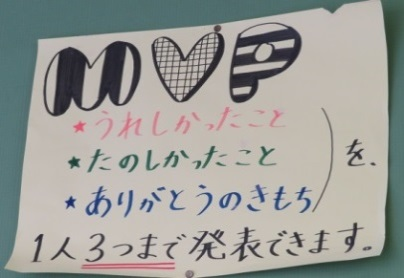 MVP
★うれしかったこと
★たのしかったこと
★ありがとうのきもち
を、
1人3つまで発表できます。